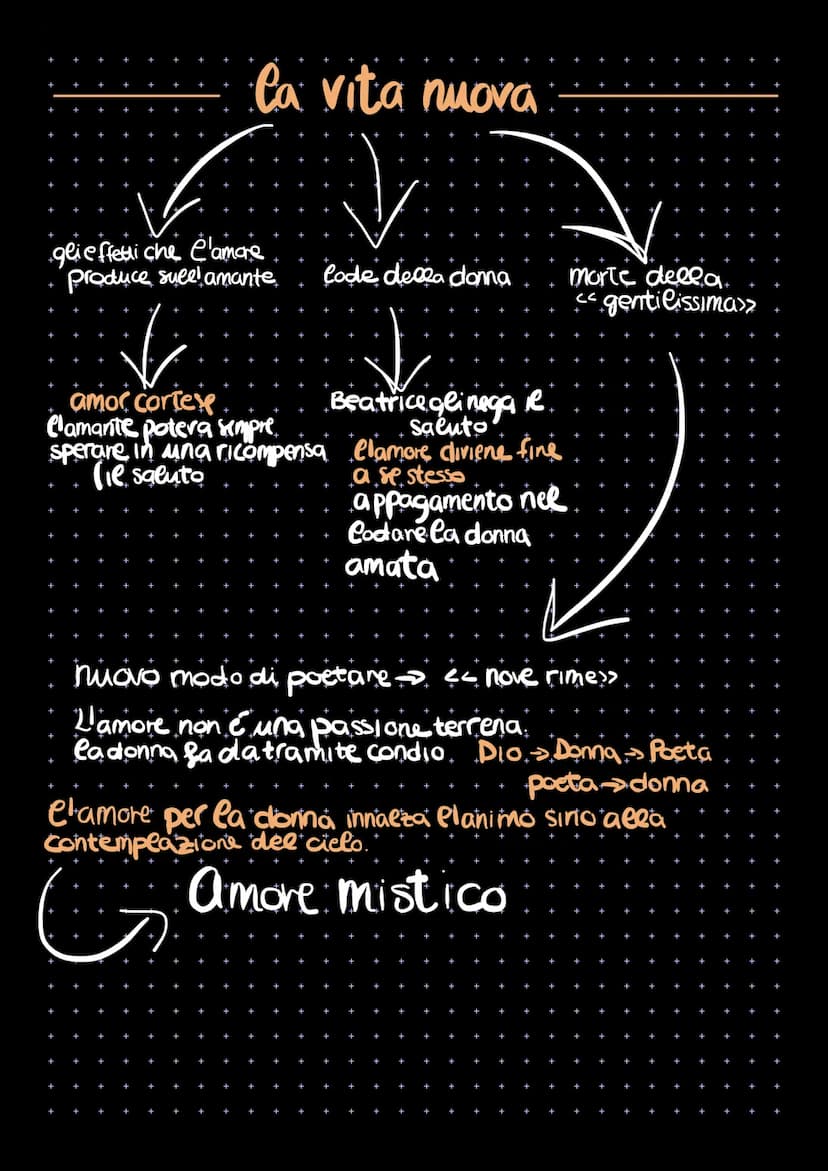 la vita nuova
gli effetti che l'amore
produce sull'amante
lode della donna
morte della
<< gentilissima>>
amor cortese
l'amante poteva sempre
sperare in una ricompensa
(il saluto
Beatrice gli nega il
saluto
l'amore diviene fine
a se stesso
appagamento nel
lodare la donna
amata
nuovo modo di poetare → << nove rime>>
L'amore non è una passione terrena
la donna fa da tramite con dio Dio → Donna → Poeta
poeta → donna
l'amore per la donna innalza l'animo sino alla
contemplazione del cielo.
Amore mistico